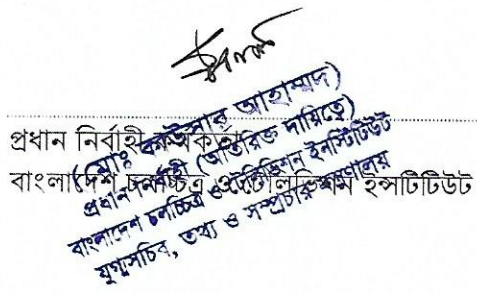 প্রধান নির্বাহী কর্মকর্তা
বাংলাদেশ চলচ্চিত্র ও টেলিভিশন ইন্সটিটিউট
(মোঃ কাউসার আহাম্মদ)
প্রধান নির্বাহী (অতিরিক্ত দায়িত্বে)
বাংলাদেশ চলচ্চিত্র ও টেলিভিশন ইনস্টিটিউট
যুগ্মসচিব, তথ্য ও সম্প্রচার মন্ত্রণালয়